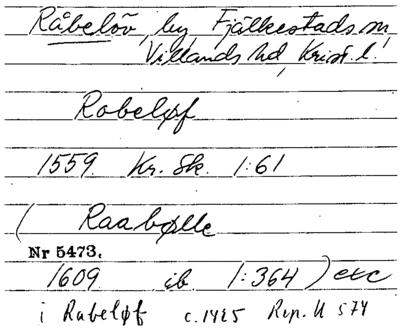 Råbelöv, by, Fjälkestads sn,
Villands hd, Krist. l.
Robeløf
1559 Kr. Sk. 1:61
( Raabølle
Nr 5473.
1609 ib 1:364 ) etc
i Rabeløf c.1425 Rep. II 574